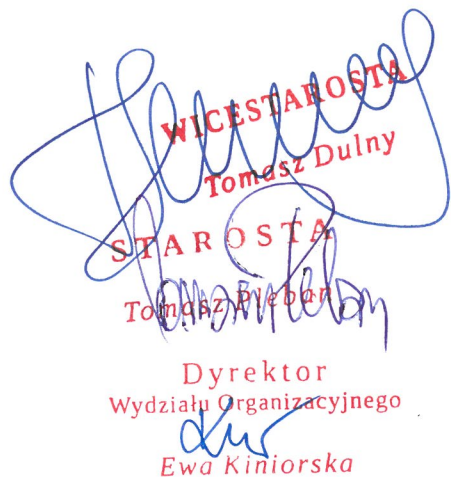 WICESTAROSTA
Tomasz Dulny
STAROSTA
Tomasz Pleban
Dyrektor
Wydziału Organizacyjnego
Ewa Kiniorska